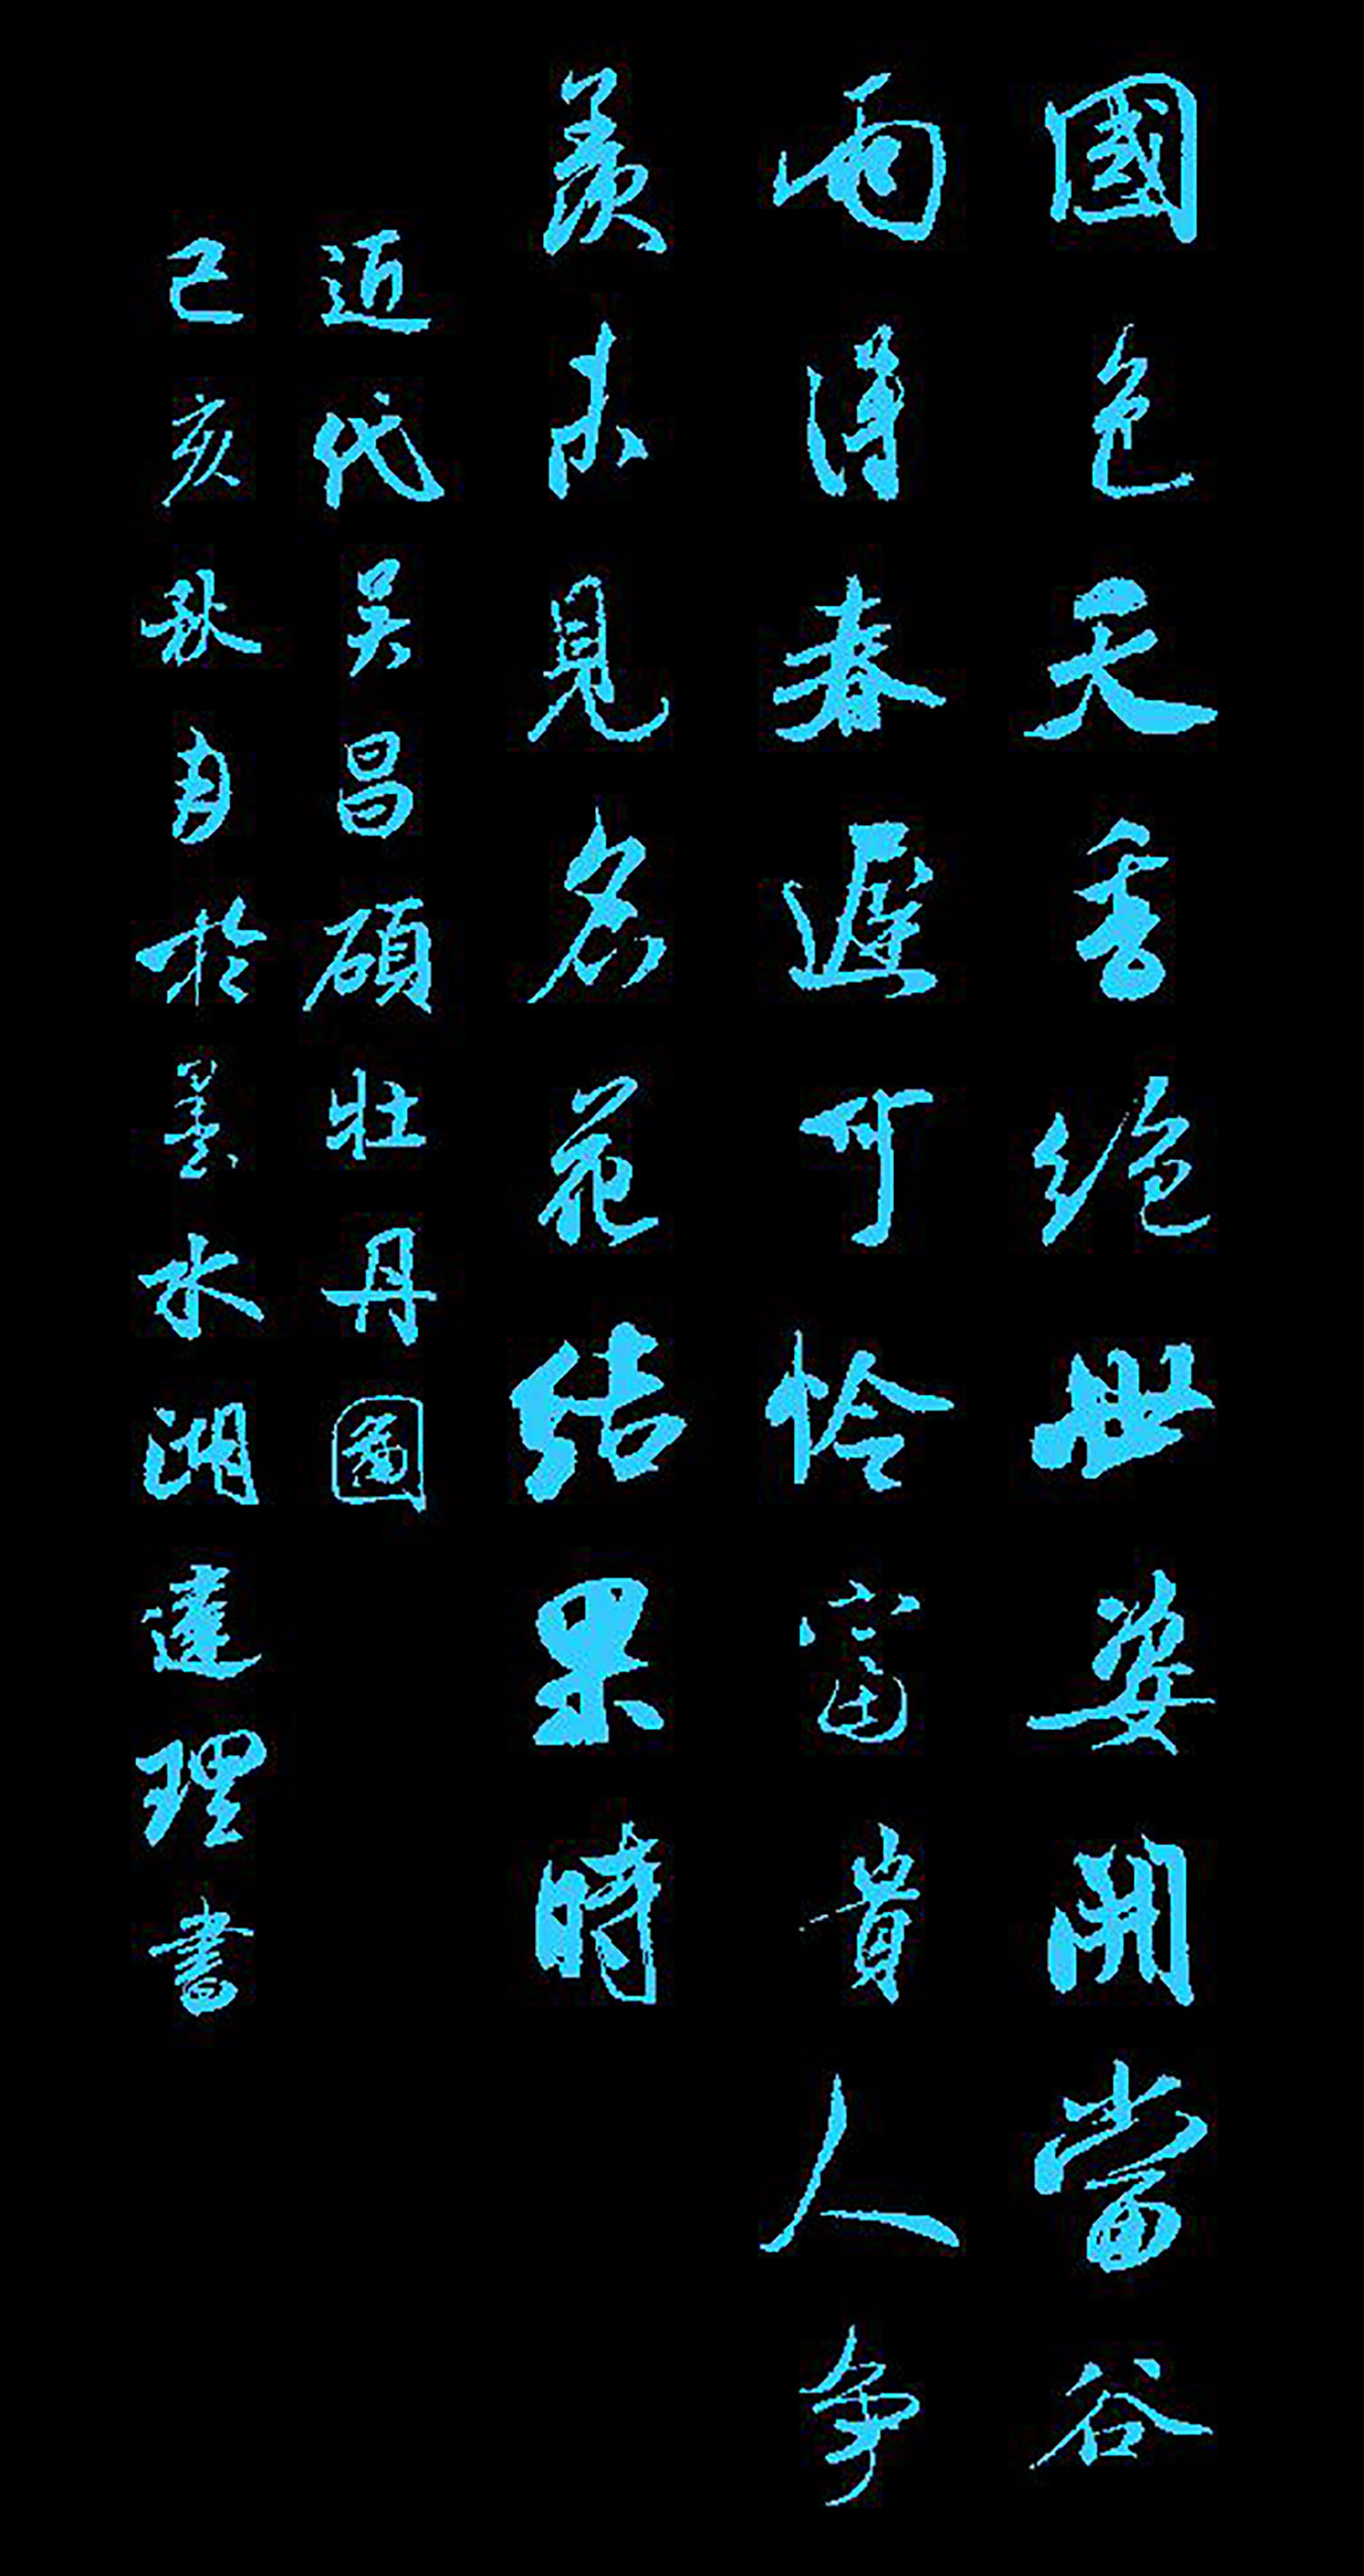 國色天香絕世姿開當谷
雨得春遲可憐富貴人爭
羨未見名花結果時
近代吳昌碩牡丹圖
己亥秋月於墨水湖達理書